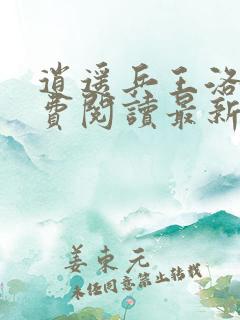 逍遥兵王洛
費閱讀最新
姜東元
未经同意禁止转载